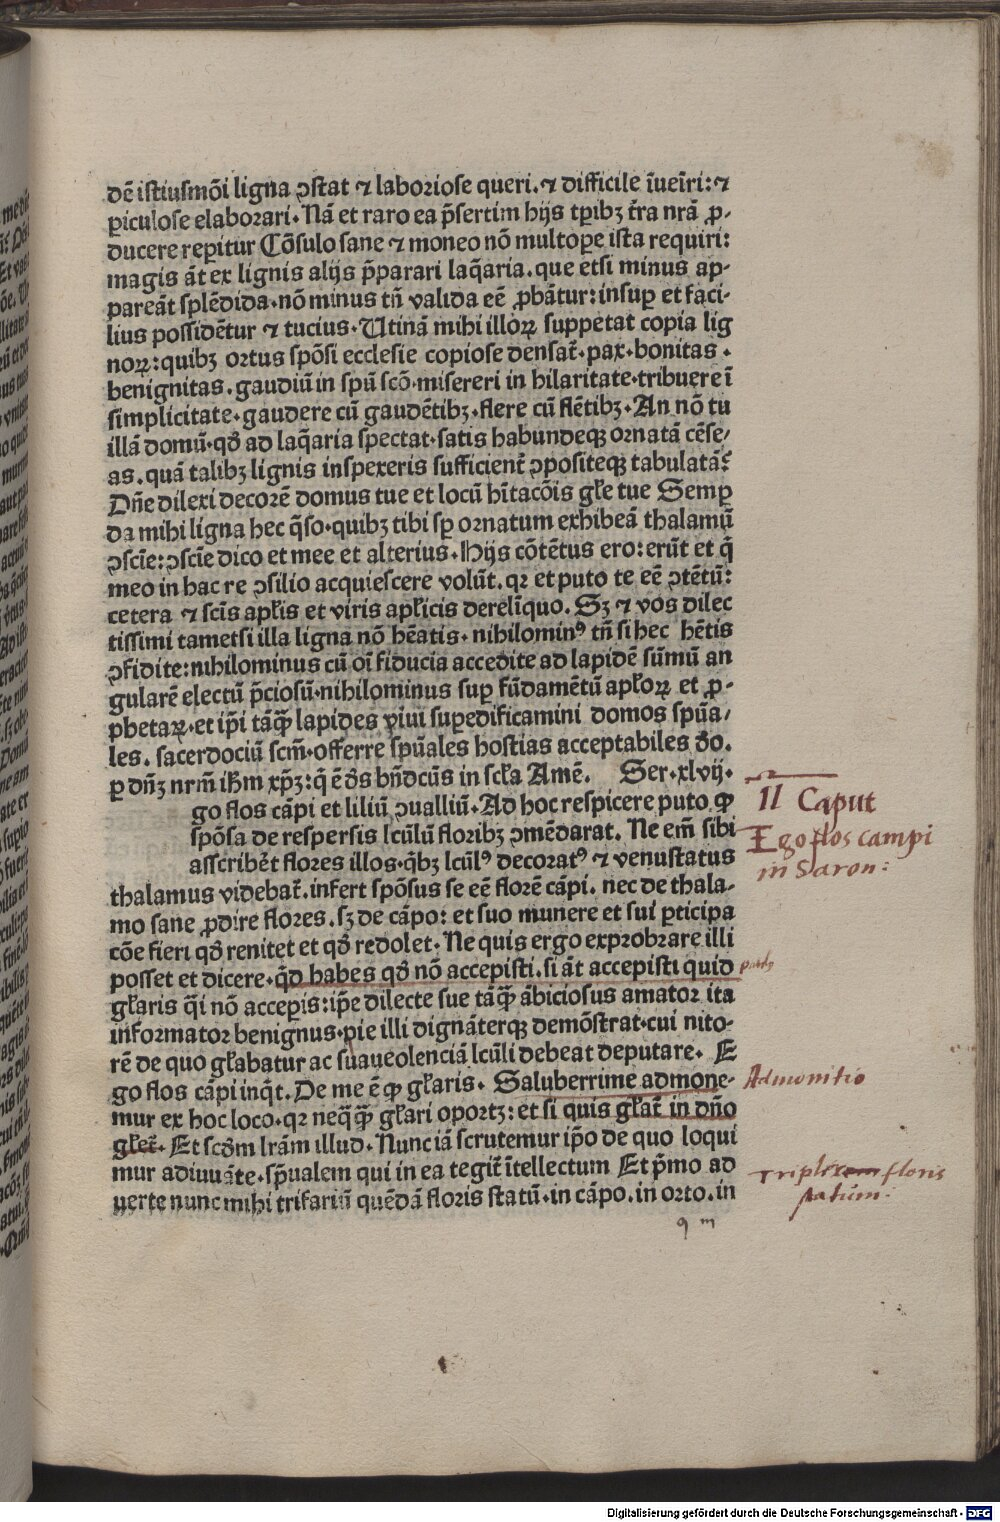 dē istiusmōi ligna ꝯstat ⁊ laboriose queri. ⁊ difficile īueīri: ⁊
ꝑiculose elaborari. Nā et raro ea p̄sertim hijs tꝑibꝫ t̄ra nr̄a ꝓ-
ducere reꝑitur Cōsulo sane ⁊ moneo nō multoꝑe ista requiri:
magis āt ex lignis alijs p̄parari laq̄aria. que etsi minus ap-
pareāt splēdida. nō minus tn̄ valida eē ꝓbātur: insuꝑ et faci-
lius possidētur ⁊ tucius. Utinā mihi illoꝝ suppetat copia lig
noꝝ: quibꝫ ortus spōsi ecclesie copiose densat̄. pax. bonitas.
benignitas. gaudiū in spū scō. misereri in hilaritate. tribuere ī
simplicitate. gaudere cū gaudētibꝫ. flere cū flētibꝫ. An nō tu
illā domū. qd̄ ad laq̄aria spectat. satis habundeqꝫ ornatā cēse/
as. quā talibꝫ lignis inspexeris sufficient̄ ꝯpositeqꝫ tabulatā?
Dn̄e dilexi decorē domus tue et locū hītacōis gl̄e tue Semꝑ
da mihi ligna hec q̄so. quibꝫ tibi sꝑ ornatum exhibeā thalamū
ꝯscīe: ꝯscīe dico et mee et alterius. Hijs cōtētus ero: erūt et q̄
meo in hac re ꝯsilio acquiescere volūt. qꝛ et puto te eē ꝯtētū:
cetera ⁊ scīs apl̄is et viris apl̄icis derelīquo. Sꝫ ⁊ vos dilec
tissimi tametsi illa ligna nō hēatis. nihilominꝰ tn̄ si hec hētis
ꝯfidite: nihilominus cū oī fiducia accedite ad lapidē sūmū an
gularē electū p̄ciosū. nihilominus suꝑ fūdamētū apl̄oꝝ et ꝓ-
phetaꝝ. et ip̄i tāꝙ̄ lapides viui suꝑedificamini domos spūa/
les. sacerdociū scm̄. offerre spūales hostias acceptabiles d̄o.
ꝑ dn̄ꝫ nrm̄ ih̄m xp̄ꝫ: q̄ ē d̄s bn̄dcūs in scl̄a Amē. Ser. xlvij.
go flos cāpi et liliū ꝯualliū. Ad hoc respicere puto ꝙ
spōsa de respersis lc̄ulū floribꝫ ꝯmēdarat. Ne em̄ sibi
asscribēt flores illos. q̄bꝫ lc̄ulꝰ decoratꝰ ⁊ venustatus
thalamus videbat̄. infert spōsus se eē florē cāpi. nec de thala-
mo sane ꝓdire flores. sꝫ de cāpo: et suo munere et sui ꝑticipa
cōe fieri qd̄ renitet et qd̄ redolet. Ne quis ergo exprobrare illi
posset et dicere. q̄d habes qd̄ nō accepisti. si āt accepisti quid
gl̄aris q̄i nō acceꝑis: ip̄e dilecte sue tāꝙ̄ ābiciosus amator ita
informator benignus. pie illi dignāterqꝫ demōstrat. cui nito-
rē de quo gl̄abatur ac suaueolenciā lc̄uli debeat deputare. E
go flos cāpi inq̄t. De me ē ꝙ gl̄aris. Saluberrime admone-
mur ex hoc loco. qꝛ neq̄ꝙ̄ gl̄ari oportꝫ: et si quis gl̄at̄ in dn̄o
gl̄et̄. Et scd̄m lr̄am illud. Nunc iā scrutemur ip̄o de quo loqui
mur adiuuāte. sp̄ualem qui in ea tegit̄ ītellectum Et p̄mo ad
uerte nunc mihi trifariū quēdā floris statū. in cāpo. in orto. in
II Caput
Ego flos campi
in Saron:
Admonitio
Triplicem floris
statum:
q m
Digitalisierung gefördert durch die Deutsche Forschungsgemeinschaft - DFG